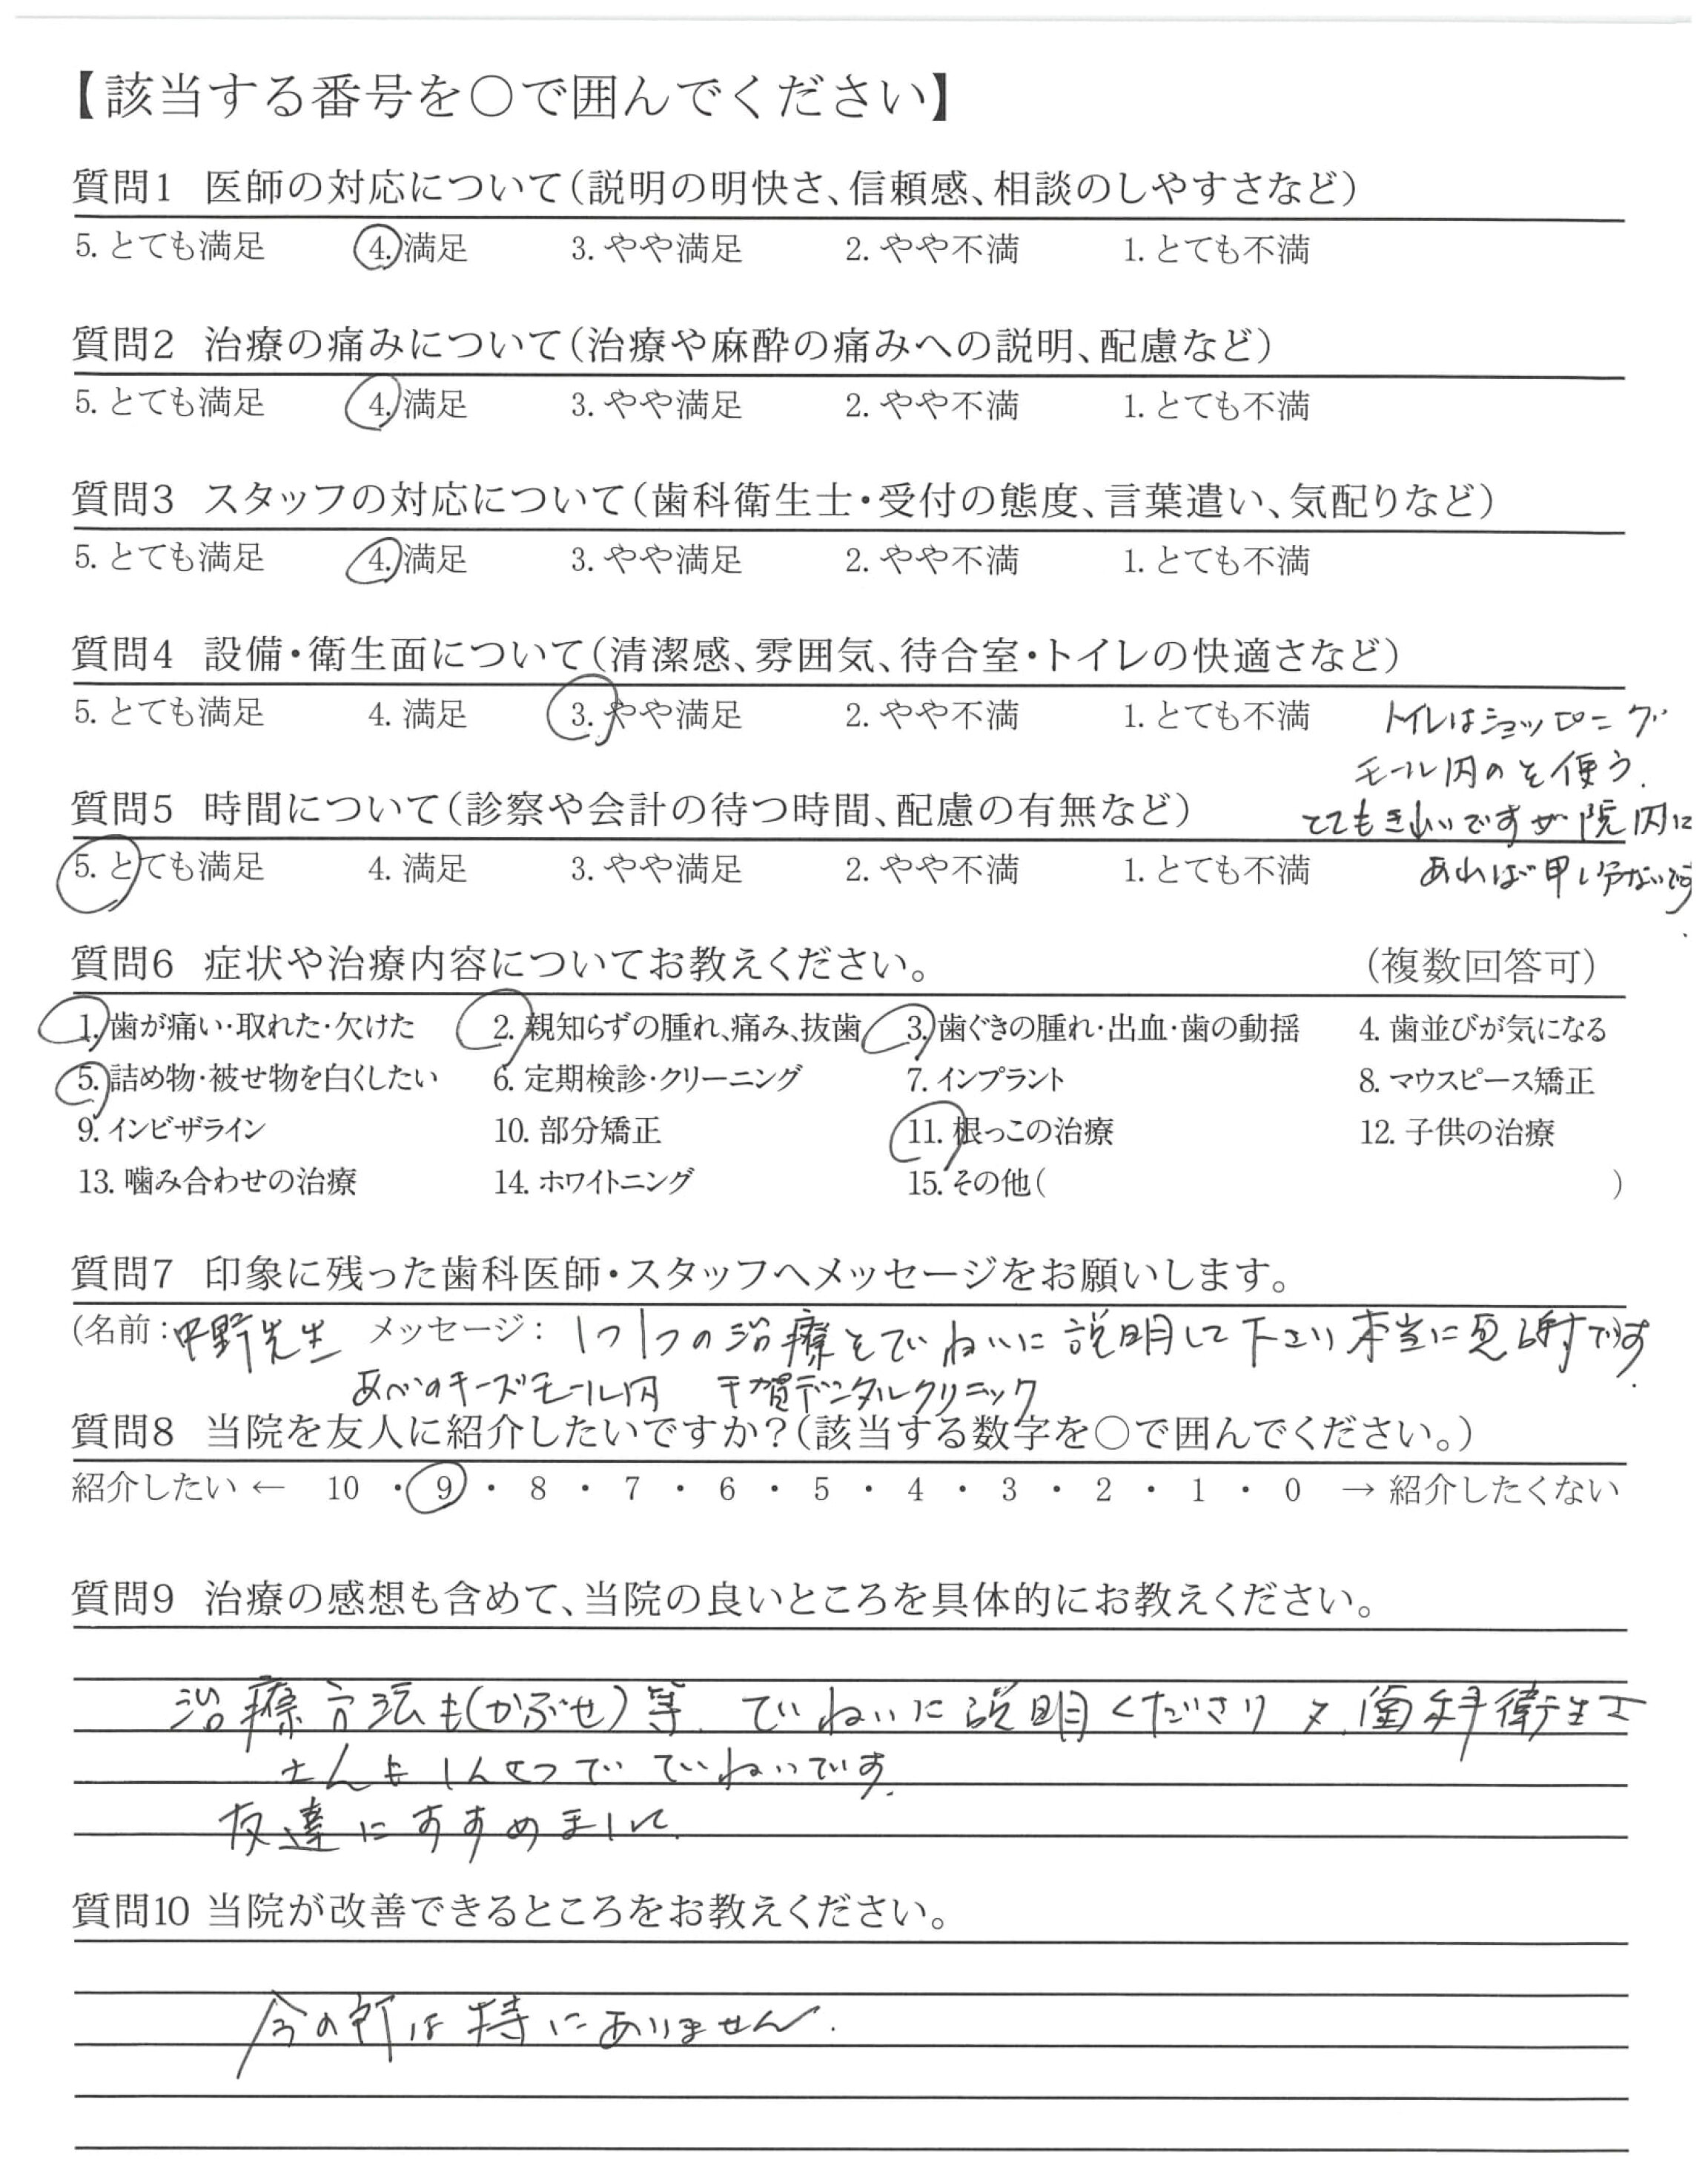 【該当する番号を○で囲んでください】
質問1 医師の対応について(説明の明快さ、信頼感、相談のしやすさなど)
5. とても満足 4. 満足 3. やや満足 2. やや不満 1. とても不満
質問2 治療の痛みについて(治療や麻酔の痛みへの説明、配慮など)
5. とても満足 4. 満足 3. やや満足 2. やや不満 1. とても不満
質問3 スタッフの対応について(歯科衛生士・受付の態度、言葉遣い、気配りなど)
5. とても満足 4. 満足 3. やや満足 2. やや不満 1. とても不満
質問4 設備・衛生面について(清潔感、雰囲気、待合室・トイレの快適さなど)
5. とても満足 4. 満足 3. やや満足 2. やや不満 1. とても不満
トイレはショッピング
モール内のを使う.
とてもきれいですが院内に
あれば申し分ないです.
質問5 時間について(診察や会計の待つ時間、配慮の有無など)
5. とても満足 4. 満足 3. やや満足 2. やや不満 1. とても不満
質問6 症状や治療内容についてお教えください。 (複数回答可)
1. 歯が痛い・取れた・欠けた 2. 親知らずの腫れ、痛み、抜歯 3. 歯ぐきの腫れ・出血・歯の動揺 4. 歯並びが気になる
5. 詰め物・被せ物を白くしたい 6. 定期検診・クリーニング 7. インプラント 8. マウスピース矯正
9. インビザライン 10. 部分矯正 11. 根っこの治療 12. 子供の治療
13. 噛み合わせの治療 14. ホワイトニング 15. その他( )
質問7 印象に残った歯科医師・スタッフへメッセージをお願いします。
(名前: 中野先生 メッセージ: 1つ1つの治療をていねいに説明して下さり本当に感謝です.
あべのキューズモール内 千賀デンタルクリニック
質問8 当院を友人に紹介したいですか?(該当する数字を○で囲んでください。)
紹介したい ← 10 ・ 9 ・ 8 ・ 7 ・ 6 ・ 5 ・ 4 ・ 3 ・ 2 ・ 1 ・ 0 → 紹介したくない
質問9 治療の感想も含めて、当院の良いところを具体的にお教えください。
治療方法も(かぶせ)等. ていねいに説明くださり 又、歯科衛生士
さんもしんせつで ていねいです.
友達にすすめました.
質問10 当院が改善できるところをお教えください。
今の所は特にありません.